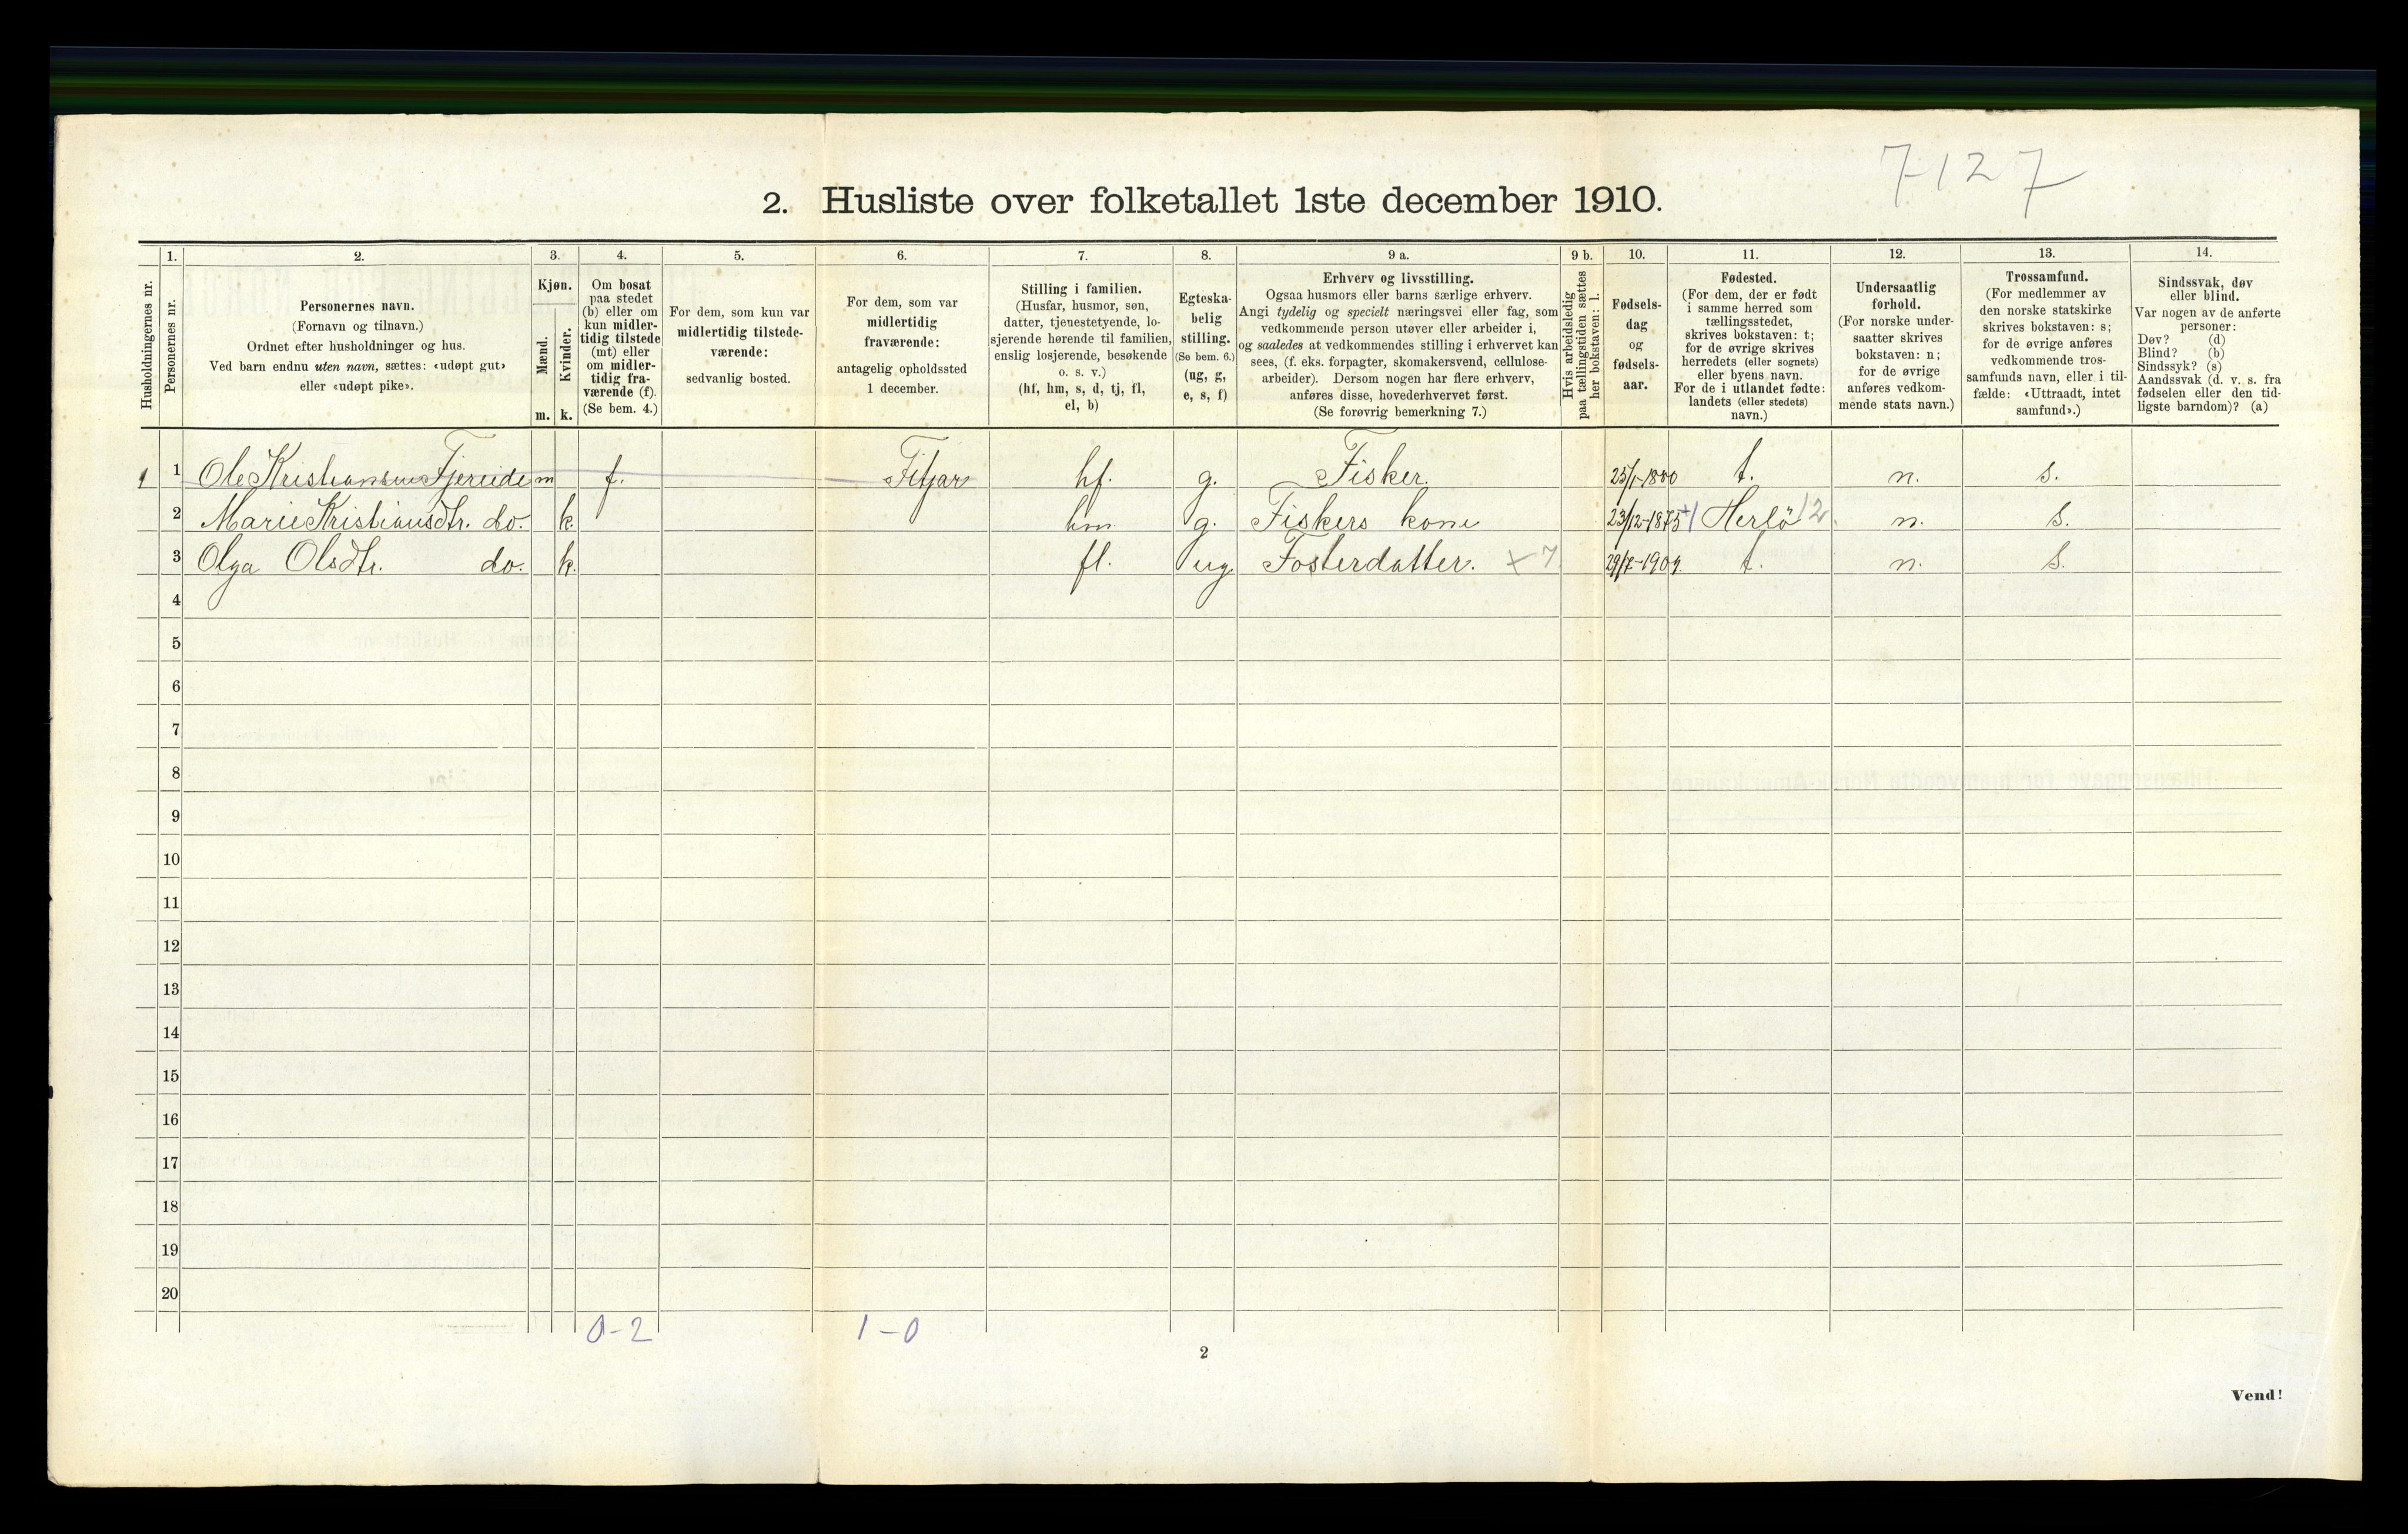 7127
2. Husliste over folketallet 1ste december 1910.
1. 2. 3. 4. 5. 6. 7. 8. 9 a. 9 b. 10. 11. 12. 13. 14.
Husholdningernes nr.
Personernes nr.
Personernes navn.
(Fornavn og tilnavn.)
Ordnet efter husholdninger og hus.
Ved barn endnu uten navn, sættes: «udøpt gut»
eller «udøpt pike».
Kjøn.
Mænd.
Kvinder.
m. k.
Om bosat
paa stedet
(b) eller om
kun midler-
tidig tilstede
(mt) eller
om midler-
tidig fra-
værende (f).
(Se bem. 4.)
For dem, som kun var
midlertidig tilstede-
værende:
sedvanlig bosted.
For dem, som var
midlertidig
fraværende:
antagelig opholdssted
1 december.
Stilling i familien.
(Husfar, husmor, søn,
datter, tjenestetyende, lo-
sjerende hørende til familien,
enslig losjerende, besøkende
o. s. v.)
(hf, hm, s, d, tj, fl,
el, b)
Egteska-
belig
stilling.
(Se bem. 6.)
(ug, g,
e, s, f)
Erhverv og livsstilling.
Ogsaa husmors eller barns særlige erhverv.
Angi tydelig og specielt næringsvei eller fag, som
vedkommende person utøver eller arbeider i,
og saaledes at vedkommendes stilling i erhvervet kan
sees, (f. eks. forpagter, skomakersvend, cellulose-
arbeider). Dersom nogen har flere erhverv,
anføres disse, hovederhvervet først.
(Se forøvrig bemerkning 7.)
Hvis arbeidsledig
paa tællingstiden sættes
her bokstaven: l.
Fødsels-
dag
og
fødsels-
aar.
Fødested.
(For dem, der er født
i samme herred som
tællingsstedet,
skrives bokstaven: t;
for de øvrige skrives
herredets (eller sognets)
eller byens navn.
For de i utlandet fødte:
landets (eller stedets)
navn.)
Undersaatlig
forhold.
(For norske under-
saatter skrives
bokstaven: n;
for de øvrige
anføres vedkom-
mende stats navn.)
Trossamfund.
(For medlemmer av
den norske statskirke
skrives bokstaven: s;
for de øvrige anføres
vedkommende tros-
samfunds navn, eller i til-
fælde: «Uttraadt, intet
samfund».)
Sindssvak, døv
eller blind.
Var nogen av de anførte
personer:
Døv? (d)
Blind? (b)
Sindssyk? (s)
Aandssvak (d. v. s. fra
fødselen eller den tid-
ligste barndom)? (a)
1 1 Ole Kristiansen Fjereide m f. Fitjar hf. g. Fisker. 25/1-1880 t. n. s.
2 Marie Kristiansdtr. do. k. hm g. Fiskers kone 23/12-1875 +1 Herlö 12. n. s.
3 Olga Olsdtr. do. k. fl. ug. Fosterdatter. +7 29/7-1904. t. n. s.
4
5
6
7
8
9
10
11
12
13
14
15
16
17
18
19
20
0-2 1-0
2
Vend!